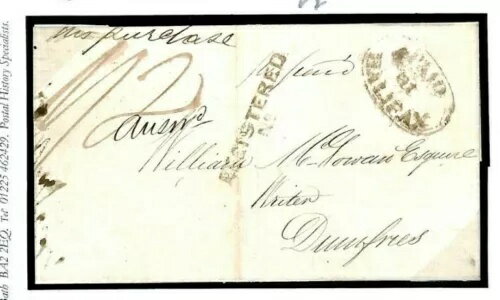 purchase
1/2
Ansrd
Paid
REGISTERED
PAID
21
HALIFAX
William McGowan Esquire
Writer
Dumfries
Bath BA2 2EQ. Tel 01225 462429. Postal History Specialists.